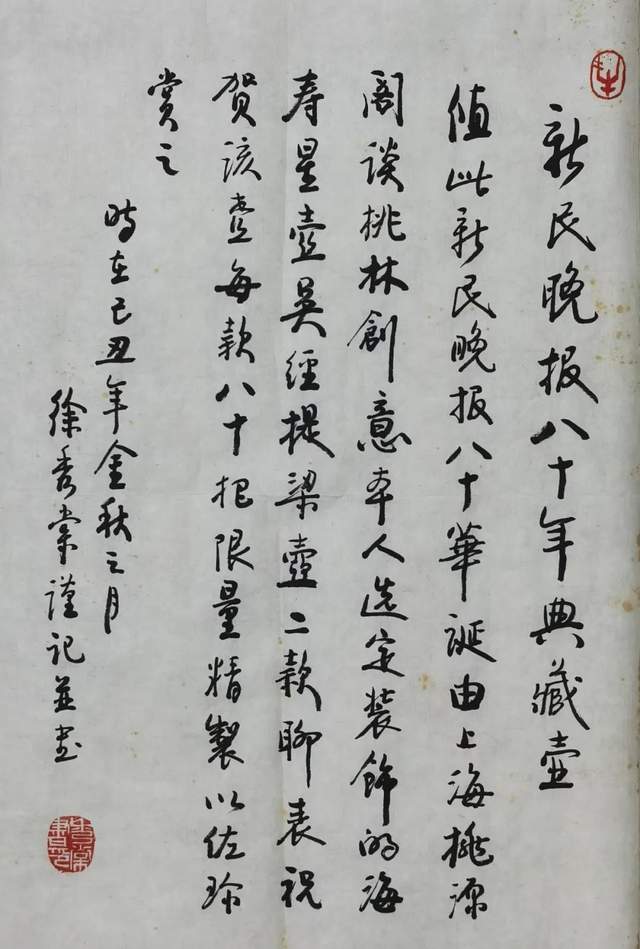 新民晚报八十年典藏壶
值此新民晚报八十華誕由上海桃源
阁谈桃林創意本人选定装飾的海
寿星壺吳經提梁壺二款聊表祝
贺该壶每款八十把限量精製以佐珍
赏之
時在己丑年金秋之月
徐秀棠谨记並书